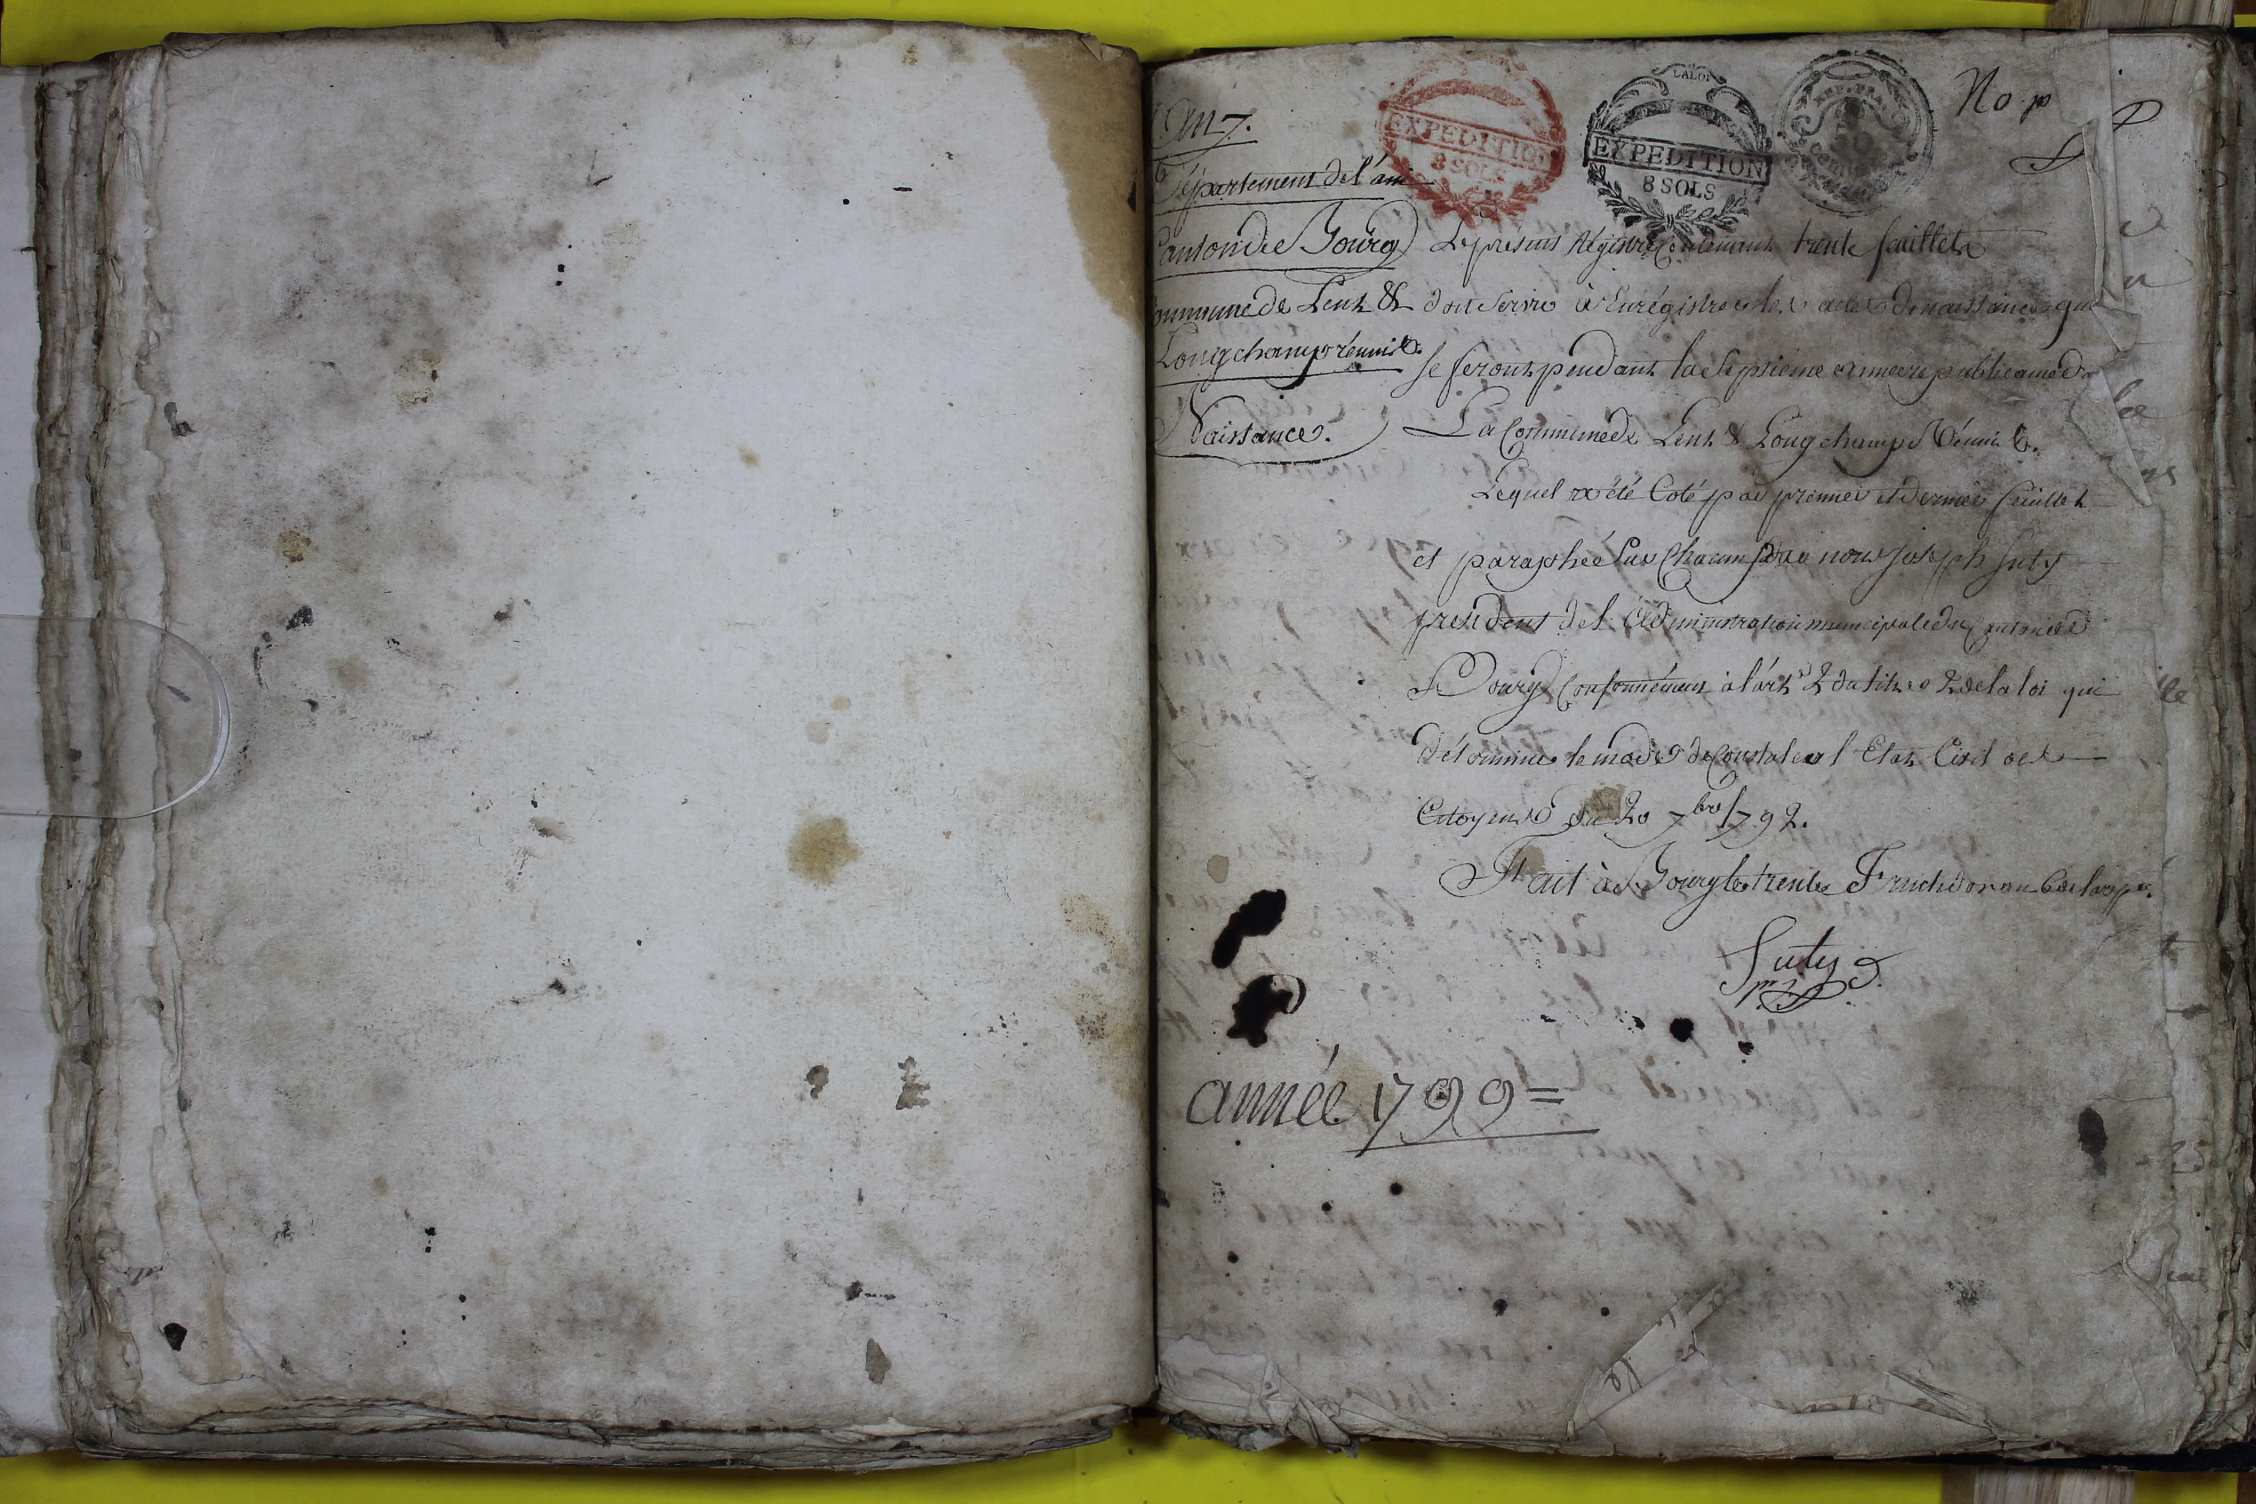 LALOI
REP. FRA
No. p
An 7.
EXPEDITION
8 SOLS
EXPEDITION
8 SOLS
Département de l'ain
Canton de Bourg
Commune de Lent &
Longchamp réunies.
Naissances.
Le présent Régistre Contenant trente feuillets
doit servir à Enrégistrer les actes de naissances qui
se feront pendant la septième année republicaine d
La Commune de Lent & Longchamp Réunies.
Lequel a été Coté par premier et dernier feuillet
et paraphée Sur Chacun par nous joseph Suty
president de l'administration municipale du Canton de
Bourg Conformément à l'art. 2 du titre 2 de la loi qui
détermine le mode de Constater l'Etat Civil des
Citoyens du 20 7bre 1792.
Fait à Bourg le trente Fructidor an 6 de la rep.
Suty
pr.
année 1799 =